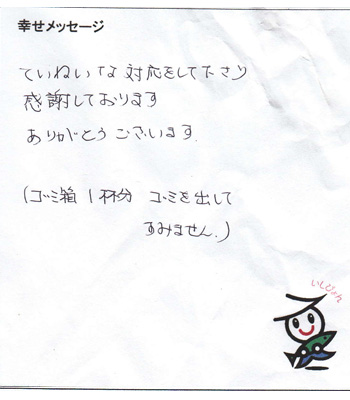 幸せメッセージ
ていねいな対応をして下さり
感謝しております
ありがとうございます.
(ゴミ箱1杯分 ゴミを出して
すみません.)
いしぴょん